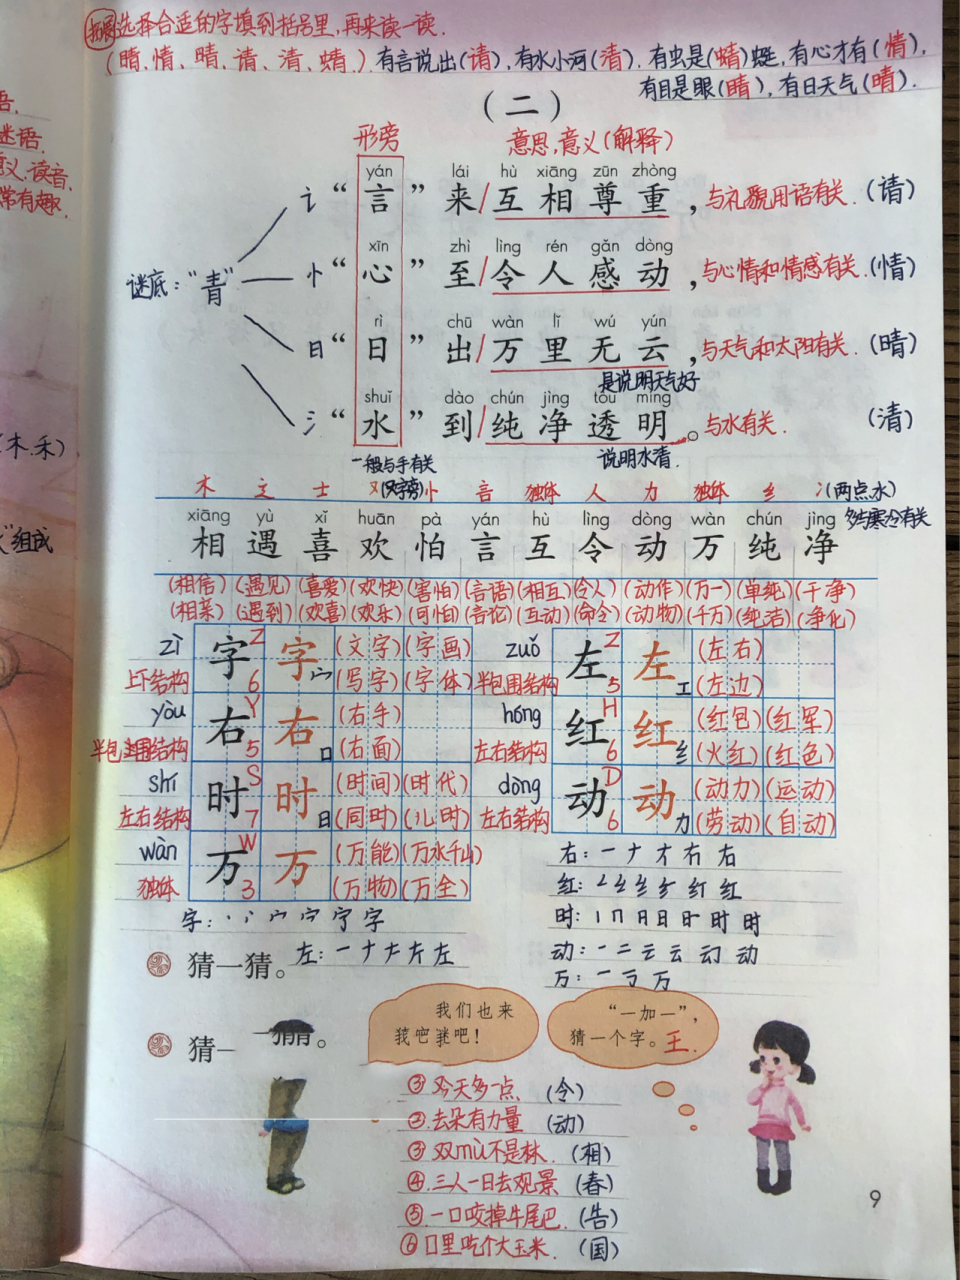 拓展 选择合适的字填到括号里,再来读一读.
(睛、情、晴、请、清、蜻、). 有言说出(请), 有水小河(清). 有虫是(蜻)蜓, 有心才有(情),
有目是眼(睛), 有日天气(晴).
(二)
形旁 意思,意义(解释)
yán lái hù xiāng zūn zhòng
讠“言”来/互相尊重,与礼貌用语有关. (请)
xīn zhì lìng rén gǎn dòng
谜底:“青” 忄“心”至/令人感动,与心情和情感有关. (情)
rì chū wàn lǐ wú yún
日“日”出/万里无云,与天气和太阳有关. (晴)
是说明天气好
shuǐ dào chún jìng tòu míng
氵“水”到/纯净透明。与水有关. (清)
一般与手有关 说明水清.
木 辶 士 又(又字旁) 忄 言 独体 人 力 独体 纟 冫(两点水)
xiāng yù xǐ huān pà yán hù lìng dòng wàn chún jìng 多与寒冷有关
相 遇 喜 欢 怕 言 互 令 动 万 纯 净
(相信)(遇见)(喜爱)(欢快)(害怕)(言语)(相互)(令人)(动作)(万一)(单纯)(干净)
(相亲)(遇到)(欢喜)(欢乐)(可怕)(言论)(互动)(命令)(动物)(千万)(纯洁)(净化)
zì 字 Z 6 字 宀 (文字)(字画)
上下结构 (写字)(字体)
zuǒ 左 Z 5 左 工 (左右)
半包围结构 (左边)
yòu 右 Y 5 右 口 (右手)
半包围结构 (右面)
hóng 红 H 6 红 纟 (红包)(红军)
左右结构 (火红)(红色)
shí 时 S 7 时 日 (时间)(时代)
左右结构 (同时)(儿时)
dòng 动 D 6 动 力 (动力)(运动)
左右结构 (劳动)(自动)
wàn 万 W 3 万 (万能)(万水千山)
独体 (万物)(万全)
右: 一 ナ 右
红: 红
时: 丨 冂 日 时
字: 丶 宀 字
左: 一 ナ 左
动: 一 二 云 动
万: 一 万
猜一猜。
猜一猜。
我们也来
猜字谜吧!
“一加一”,
猜一个字。王.
③ 今天多一点 (令)
②.去朵有力量 (动)
③ 双mù不是林. (相)
④.三人一日去观景 (春)
⑤.一口咬掉牛尾巴. (告)
⑥ 口里吃个大玉米. (国)
9
语.
谜语.
义、读音.
常有趣.
(木.禾)
”组成